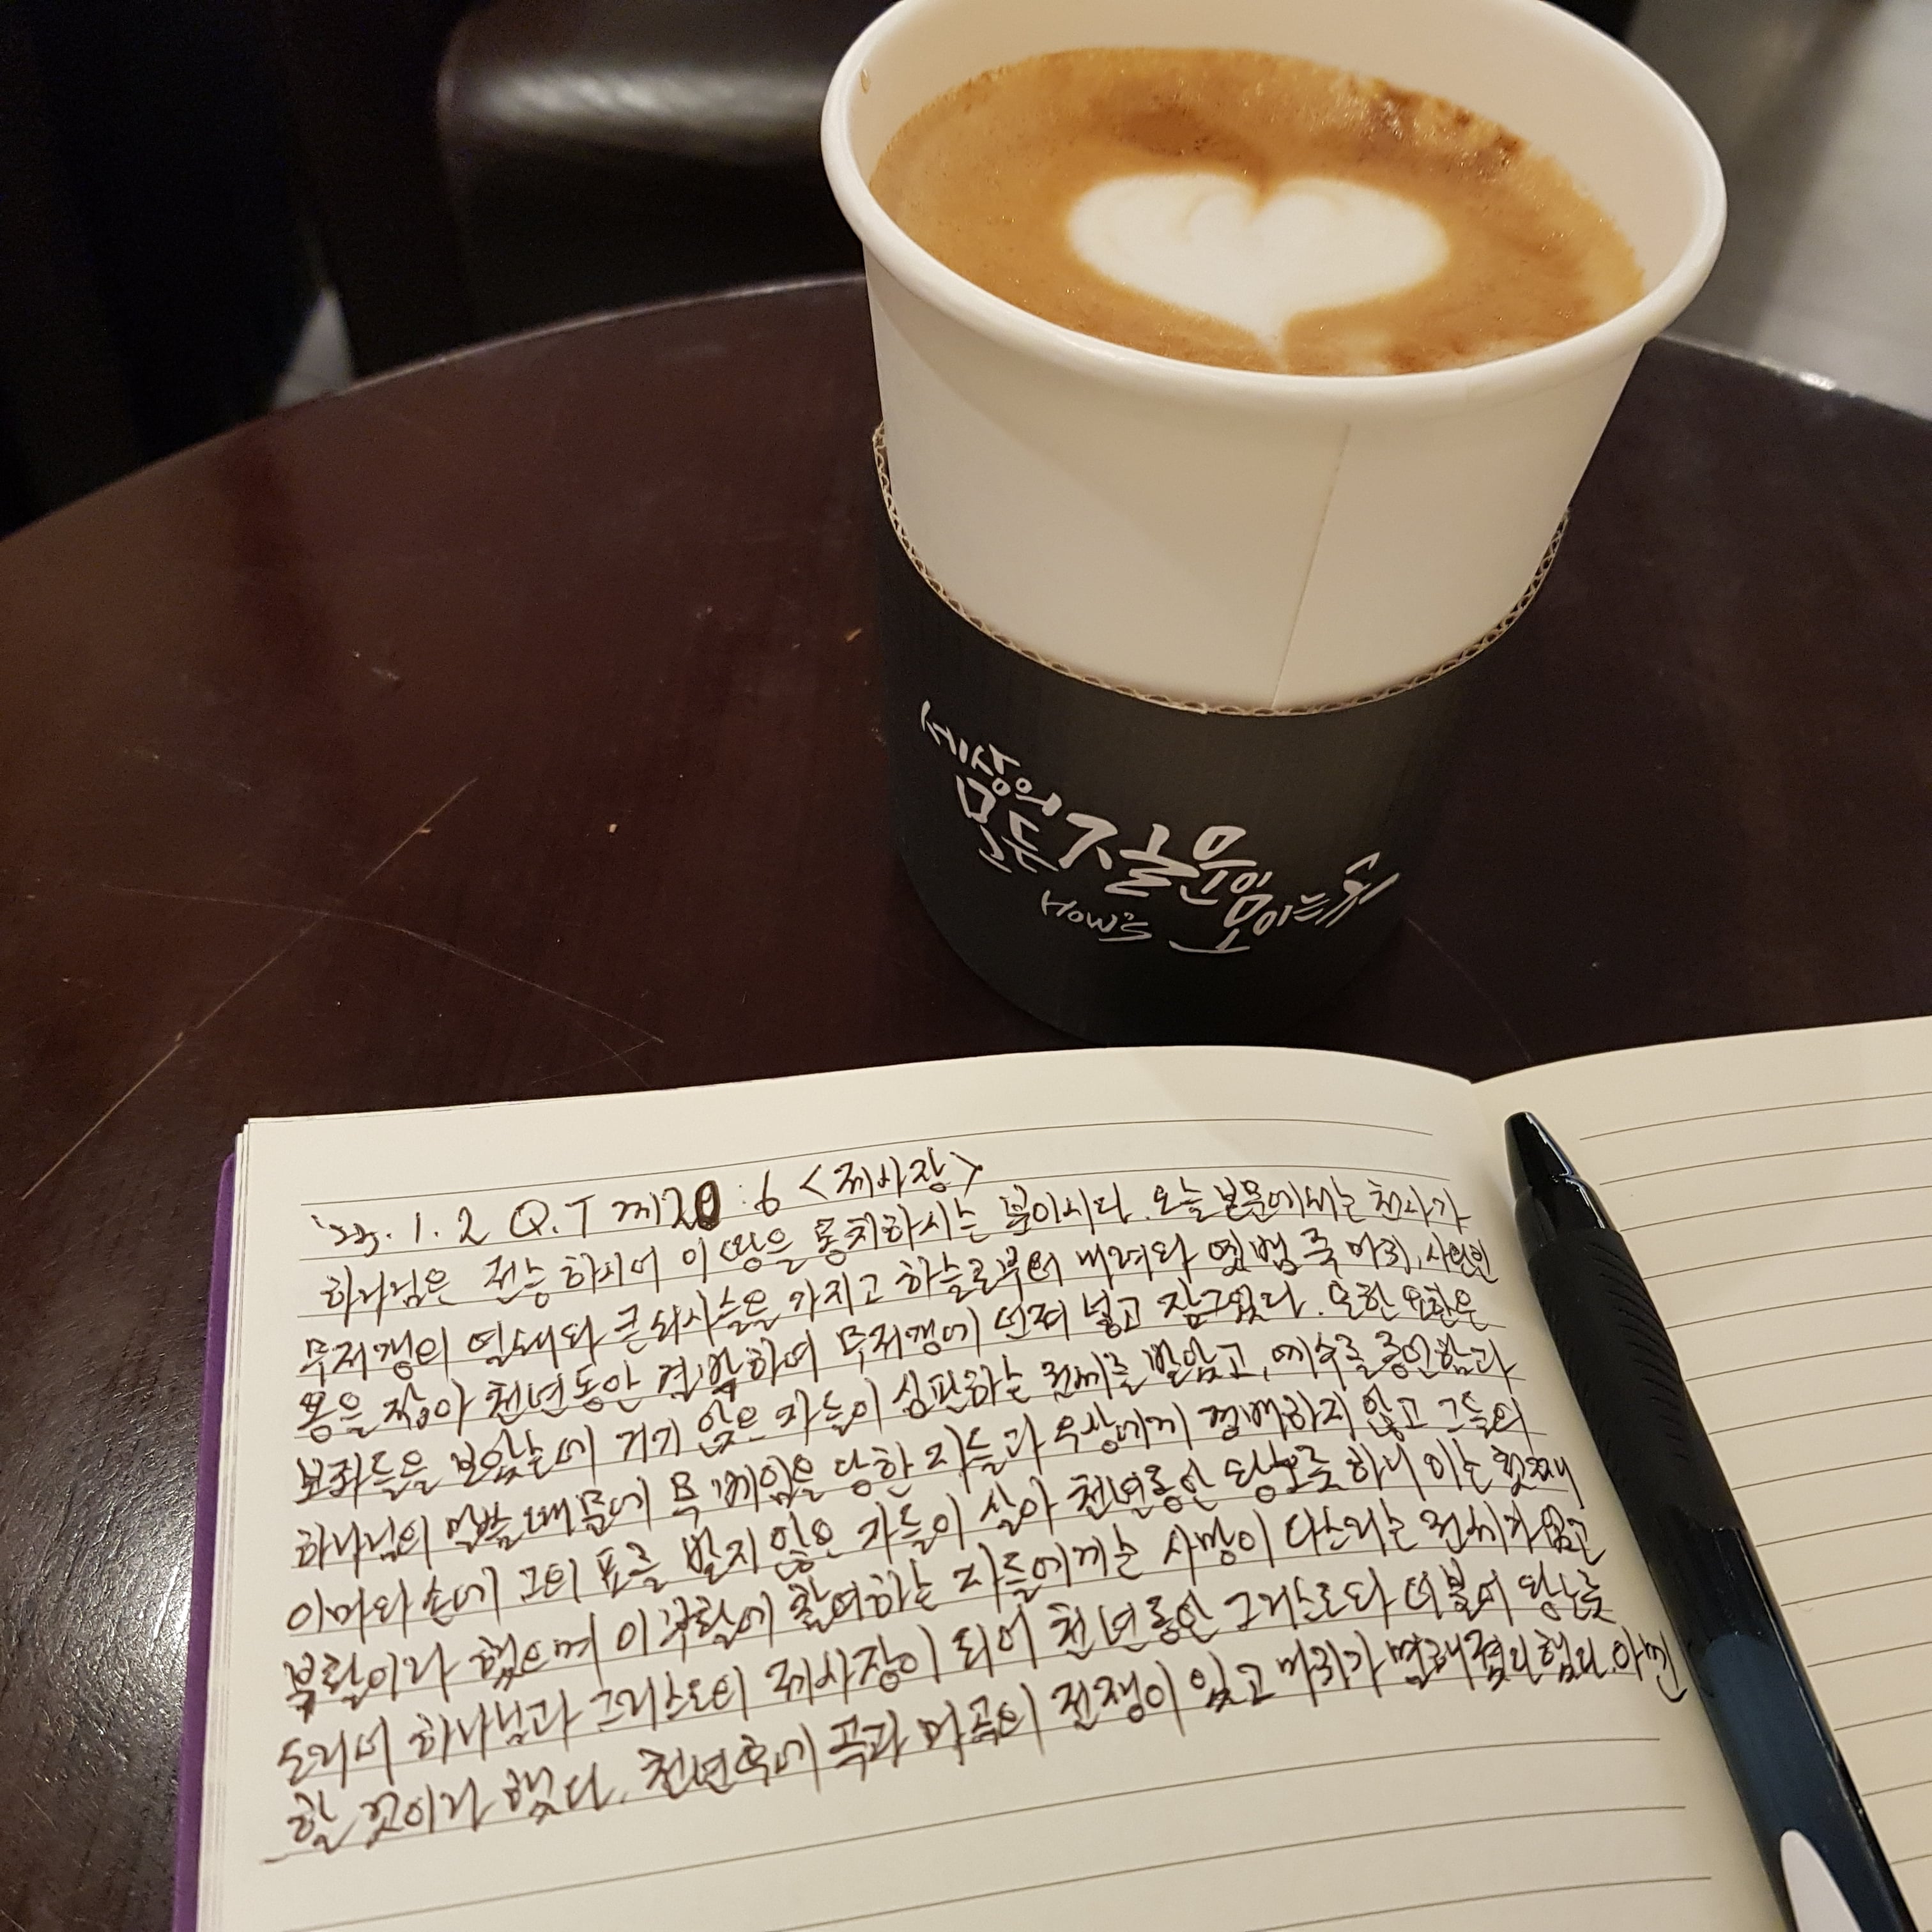 세상의
모든 질문이
모이는 곳
HOW'S
'23. 1. 2 Q.T 계20:6 <제사장>
하나님은 전능하시어 이 땅을 통치하시는 분이시다. 오늘 본문에서는 천사가
무저갱의 열쇠와 큰 쇠사슬을 가지고 하늘로부터 내려와 옛뱀 즉 마귀, 사탄인
용을 잡아 천년동안 결박하여 무저갱에 던져 넣고 잠그었다. 또한 요한은
보좌들을 보았는데 거기 앉은 자들이 심판하는 권세를 받았고, 예수를 증언함과
하나님의 말씀때문에 목베임을 당한 자들과 우상에게 경배하지 않고 그들의
이마와 손에 그의 표를 받지 않은 자들이 살아 천년동안 왕노릇 하니 이는 첫째
부활이라 했으며 이 부활에 참여하는 자들에게는 사망이 다스리는 권세가 없고
도리어 하나님과 그리스도의 제사장이 되어 천년동안 그리스도와 더불어 왕노릇
할 것이라 했다. 천년후에 곡과 마곡의 전쟁이 있고 마귀가 했다. 아멘